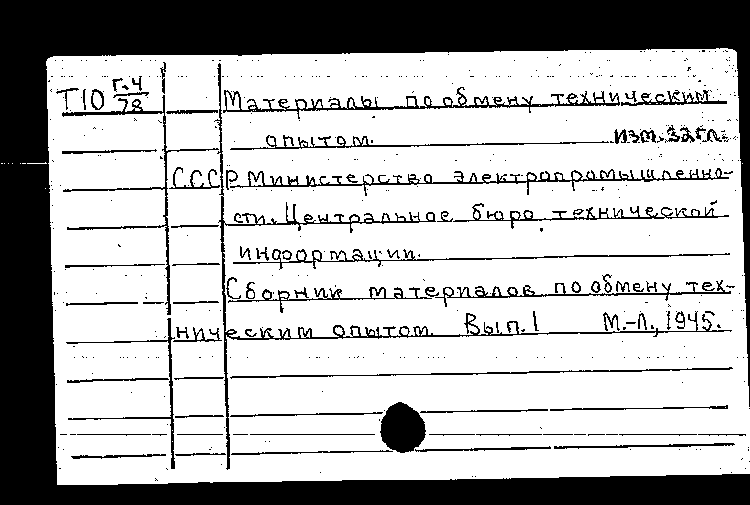 Т10 Г.4/78 Материалы по обмену техническим
опытом. изм. загл.
СССР Министерство электропромышленно-
сти. Центральное бюро технической
информации.
Сборник материалов по обмену тех-
ническим опытом. Вып. 1 М.-Л., 1945.